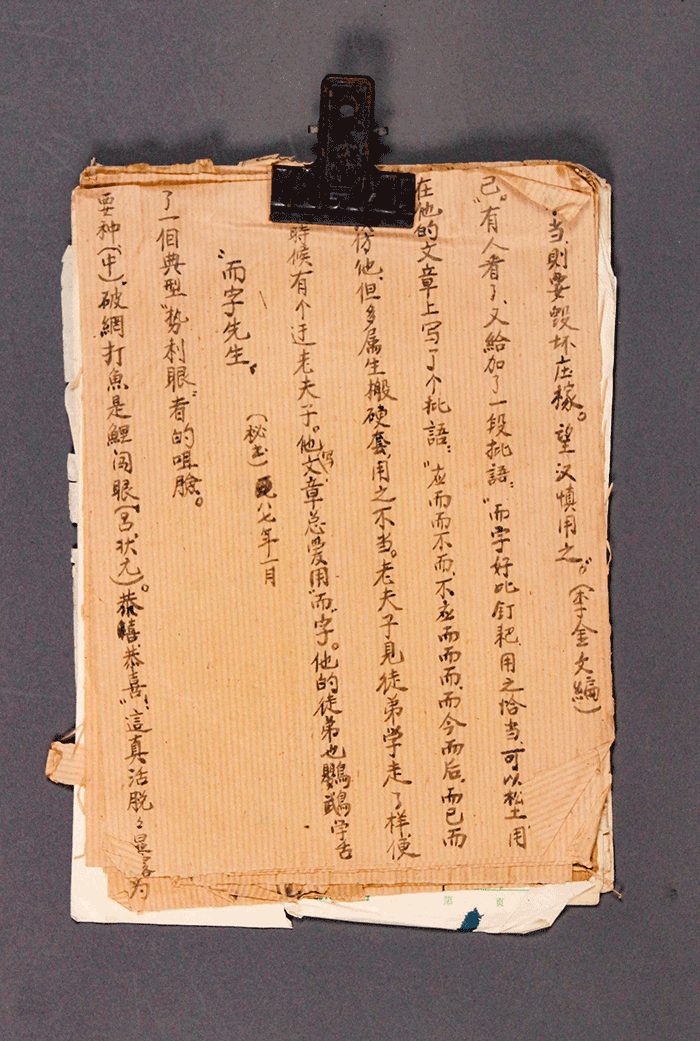 耍神（中），破網打魚是鯉闯眼（吕状元）。恭喜恭喜”，這真活脱々暴露为
了一個典型“势利眼”者的咀臉。
“而字先生”
（秘玉）八七年一月
時候有个迂老夫子。他写文章总爱用“而”字。他的徒弟也鸚鵡学舌
仿他，但多属生搬硬套，用之不当。老夫子見徒弟学走了样，便
在他的文章上写了个批語：“应而而不而，不应而而而，而今而后，而已而
已。”有人看了，又給加了一段批語：“而字好比釘耙，用之恰当，可以松土，用
当，則要毁坏庄稼。望汉慎用之。”（李金文編）
第 頁